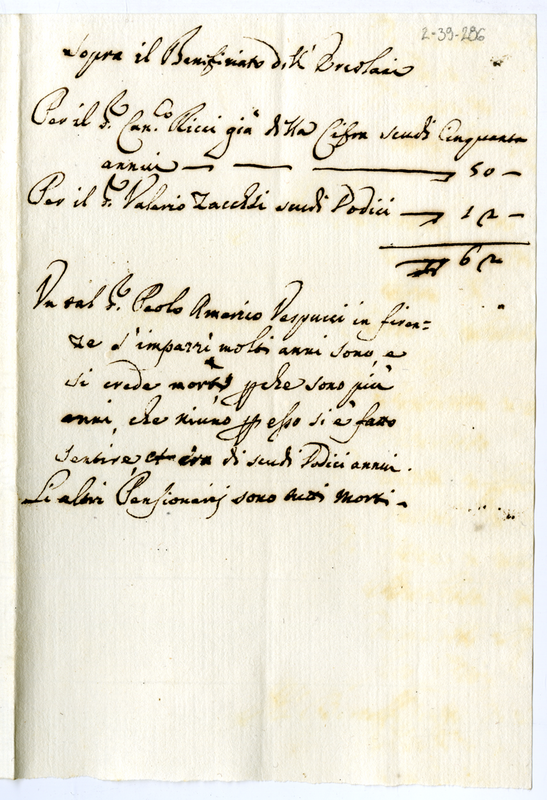 2-39-286
Sopra il Benifiziato dell' Ercolani
Per il Sr. Can.co Ricci già della Cifra scudi Cinquanta
annui — — — 50 —
Per il Sr. Valerio Zacchi scudi Dodici — 12 —
62
Un tal Sr. Paolo Americo Vespucci in firen=
ze s'impazzì molti anni sono, e
si crede morto pche sono più
anni, che niuno p esso si è fatto
sentire, di scudi Dodici annui.
Li altri Pensionarij sono tutti morti.